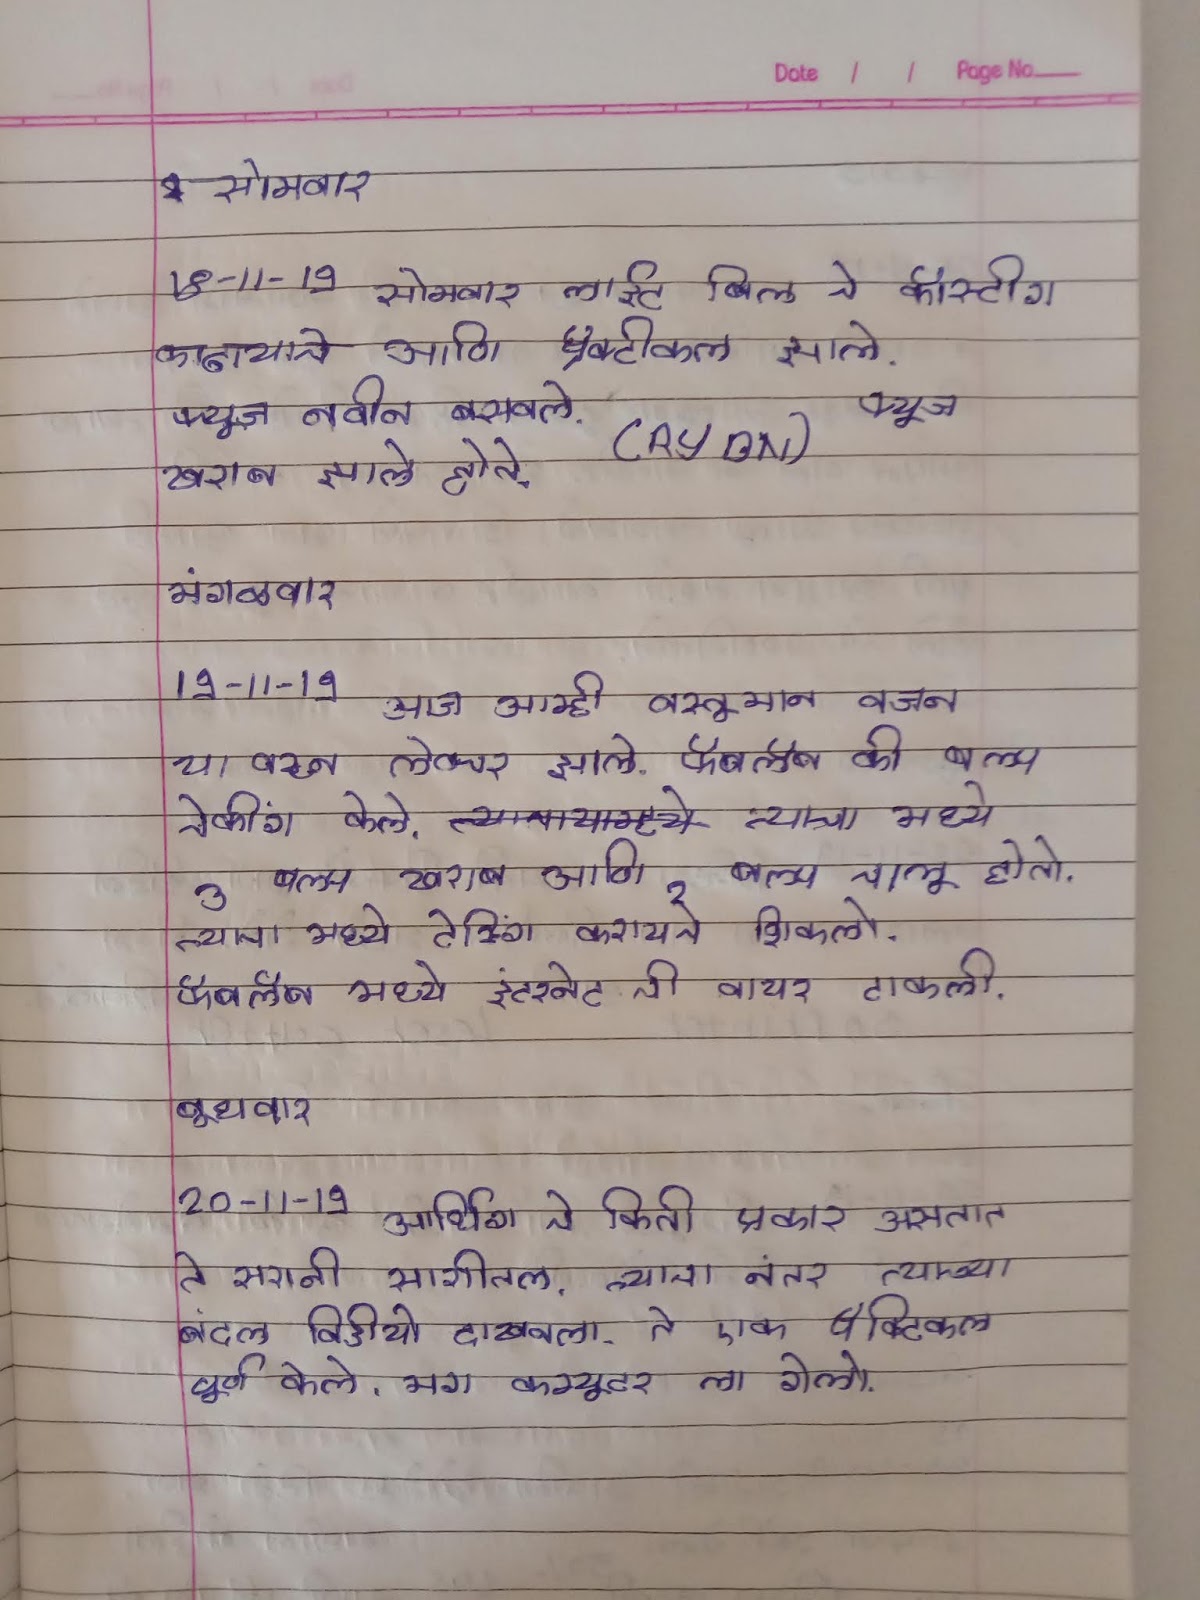 Date / / Page No.
सोमवार
18-11-19 सोमवार लाईट बिल चे कॉस्टींग
काढायाचे आणि प्रॅक्टीकल झाले.
फ्यूज नवीन बसवले. (RYBN) फ्यूज
खराब झाले होते.
मंगळवार
19-11-19 आज आम्ही वस्तूमान वजन
या वरून लेक्चर झाले. फॅबलॅब की बल्प
चेकींग केले. त्याचा मध्ये
3 बल्प खराब आणि 2 बल्प चालू होतो.
त्याचा मध्ये टेस्टिंग करायचे शिकलो.
फॅबलॅब मध्ये इंटरनेट ची वायर टाकली.
बूधवार
20-11-19 आर्थिंग चे किती प्रकार असतात
ते सरानी सागीतल. त्याचा नंतर त्याच्या
बंदल विडीयो दाखवला. ते एक प्रॅक्टिकल
पूर्ण केले. मग कम्प्यूटर ला गेलो.